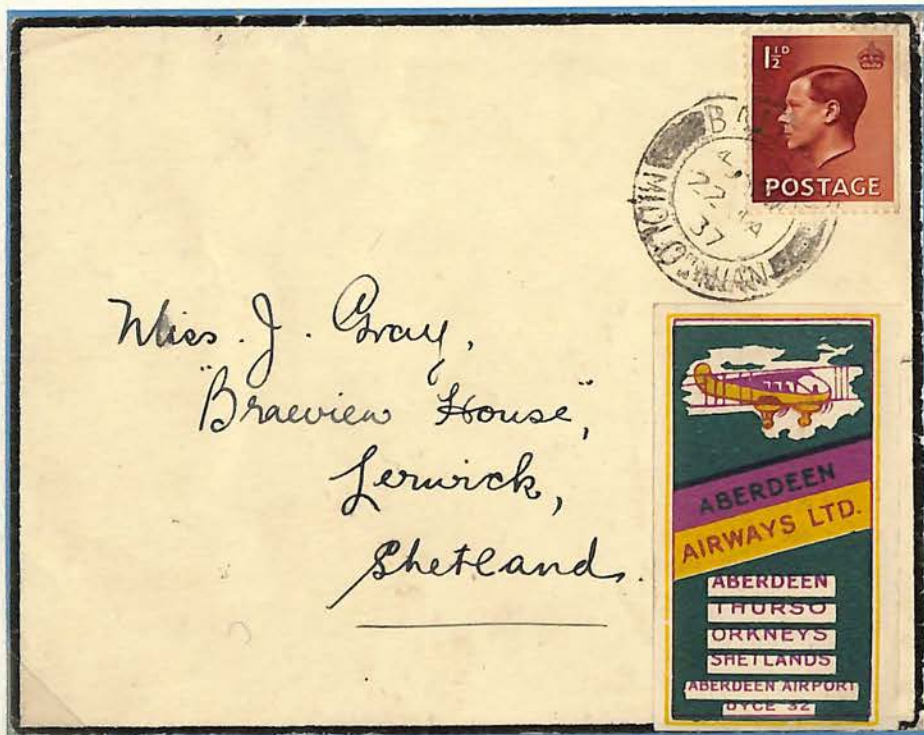 1½D
POSTAGE
22
37
Miss. J. Gray,
"Braeview House",
Lerwick,
Shetland.
ABERDEEN
AIRWAYS LTD.
ABERDEEN
THURSO
ORKNEYS
SHETLANDS
ABERDEEN AIRPORT
DYCE 32